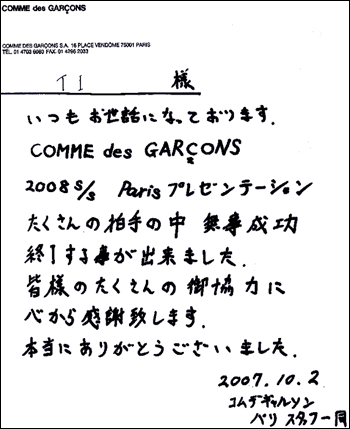 COMME des GARÇONS
COMME DES GARÇONS S.A. 16 PLACE VENDÔME 75001 PARIS
TÉL. 01 4703 6080 FAX. 01 4296 2033
TI 様
いつもお世話になっております.
COMME des GARÇONS
2008 S/S Paris プレゼンテーション
たくさんの拍手の中 無事成功
終了する事が出来ました.
皆様のたくさんの御協力に
心から感謝致します.
本当にありがとうございました.
2007.10.2
コムデギャルソン
パリ スタッフ一同